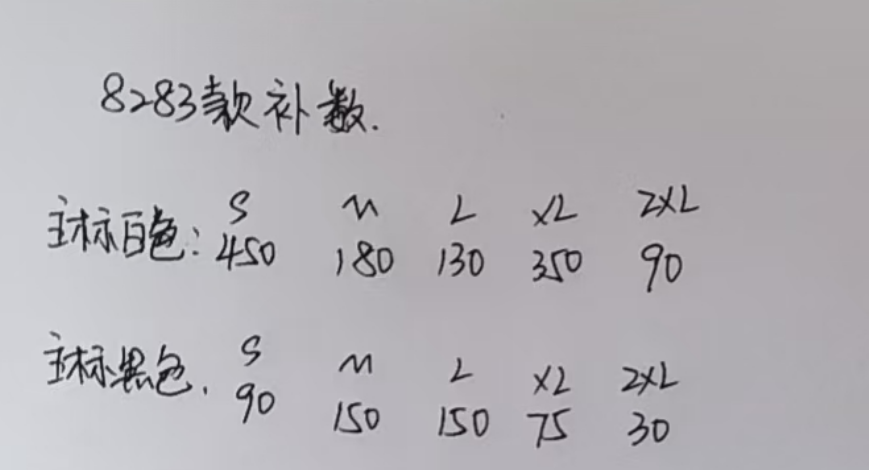 8283款补数.
S M L XL 2XL
主标白色: 450 180 130 350 90
S M L XL 2XL
主标黑色. 90 150 150 75 30